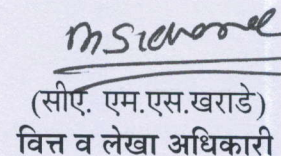 (सीए. एम.एस.खराडे)
वित्त व लेखा अधिकारी